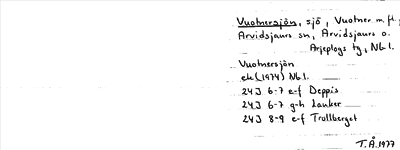 Vuotnersjön, sjö, Vuotner m.fl.,
Arvidsjaurs sn, Arvidsjaurs o.
Arjeplogs tg, Nb.l.
Vuotnersjön
ek (1974) Nb.l.
24J 6-7 e-f Deppis
24J 6-7 g-h Lauker
24J 8-9 e-f Trollberget
T.Å. 1977